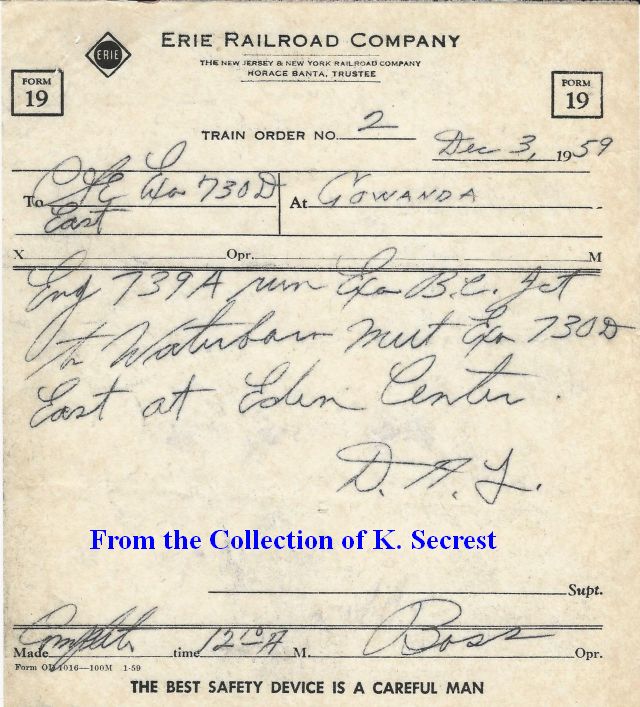 ERIE
ERIE RAILROAD COMPANY
THE NEW JERSEY & NEW YORK RAILROAD COMPANY
HORACE BANTA, TRUSTEE
FORM 19
FORM 19
TRAIN ORDER NO. 2
Dec 3, 1959
To C&E Exa 730D At GOWANDA
East
X Opr. M
Eng 739A run Exa B.C. Jct
to Waterboro Meet Exa 730D
East at Eden Center.
D. A. L.
From the Collection of K. Secrest
Supt.
Made Complete time 12 10 A M. Boss Opr.
Form OD 1016—100M 1-59
THE BEST SAFETY DEVICE IS A CAREFUL MAN